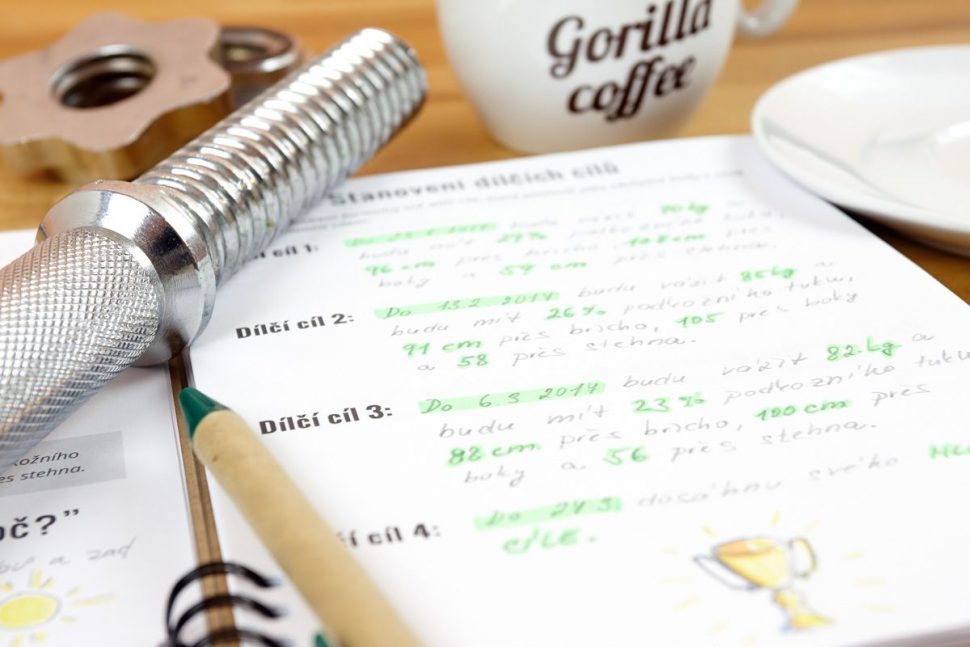 Gorilla
coffee
Stanovení dílčích cílů
cíl 1:
budu
96 cm přes břicho, 108 cm přes
boky a 59 cm přes stehna.
Dílčí cíl 2:
Do 13.2 2017 budu vážit 85 kg a
budu mít 26% podkožního tuku,
91 cm přes břicho, 105 přes boky
a 58 přes stehna.
Dílčí cíl 3:
Do 6.3 2017 budu vážit 82 kg a
budu mít 23% podkožního tuku
88 cm přes břicho, 100 cm přes
boky a 56 přes stehna.
cíl 4:
Do 27.3 dosáhnu svého
CÍLE.
kožního
es stehna.
OČ?”
a zad